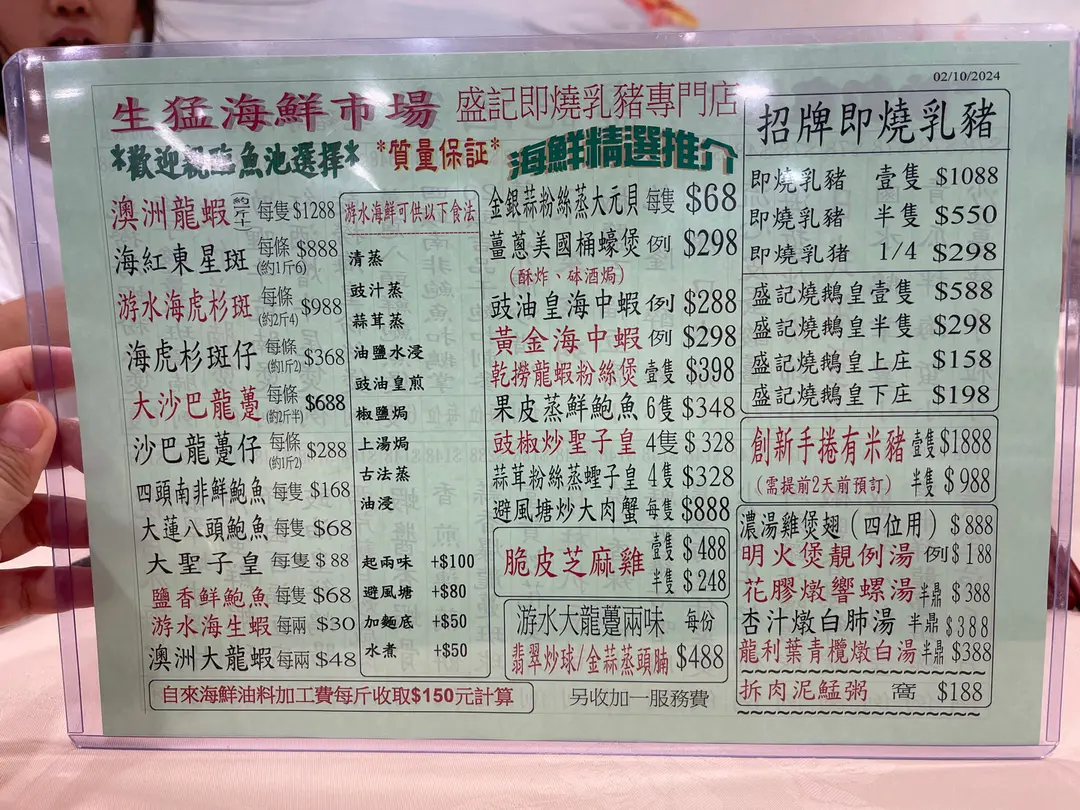 02/10/2024
生猛海鮮市場 盛記即燒乳豬專門店
*歡迎親臨魚池選擇* *質量保証*
澳洲龍蝦(約二斤) 每隻$1288
海紅東星斑 每條(約1斤6) $888
游水海虎杉斑 每條(約2斤4) $988
海虎杉斑仔 每條(約1斤2) $368
大沙巴龍躉 每條(約2斤半) $688
沙巴龍躉仔 每條(約1斤2) $288
四頭南非鮮鮑魚 每隻 $168
大蓮八頭鮑魚 每隻 $68
大聖子皇 每隻 $88
鹽香鮮鮑魚 每隻 $68
游水海生蝦 每兩 $30
澳洲大龍蝦 每兩 $48
游水海鮮可供以下食法
清蒸
豉汁蒸
蒜茸蒸
油鹽水浸
豉油皇煎
椒鹽焗
上湯焗
古法蒸
油浸
起兩味 +$100
避風塘 +$80
加麵底 +$50
水煮 +$50
自來海鮮油料加工費每斤收取$150元計算
海鮮精選推介
金銀蒜粉絲蒸大元貝 每隻 $68
薑蔥美國桶蠔煲 例 $298
(酥炸、砵酒焗)
豉油皇海中蝦 例 $288
黃金海中蝦 例 $298
乾撈龍蝦粉絲煲 壹隻 $398
果皮蒸鮮鮑魚 6隻 $348
豉椒炒聖子皇 4隻 $328
蒜茸粉絲蒸蟶子皇 4隻 $328
避風塘炒大肉蟹 每隻 $888
脆皮芝麻雞 壹隻 $488
半隻 $248
游水大龍躉兩味 每份
翡翠炒球/金蒜蒸頭腩 $488
另收加一服務費
招牌即燒乳豬
即燒乳豬 壹隻 $1088
即燒乳豬 半隻 $550
即燒乳豬 1/4 $298
盛記燒鵝皇壹隻 $588
盛記燒鵝皇半隻 $298
盛記燒鵝皇上庄 $158
盛記燒鵝皇下庄 $198
創新手捲有米豬 壹隻 $1888
(需提前2天前預訂) 半隻 $988
濃湯雞煲翅(四位用) $888
明火煲靚例湯 例 $188
花膠燉響螺湯 半鼎 $388
杏汁燉白肺湯 半鼎 $388
龍利葉青欖燉白湯 半鼎 $388
拆肉泥鯭粥 窩 $188